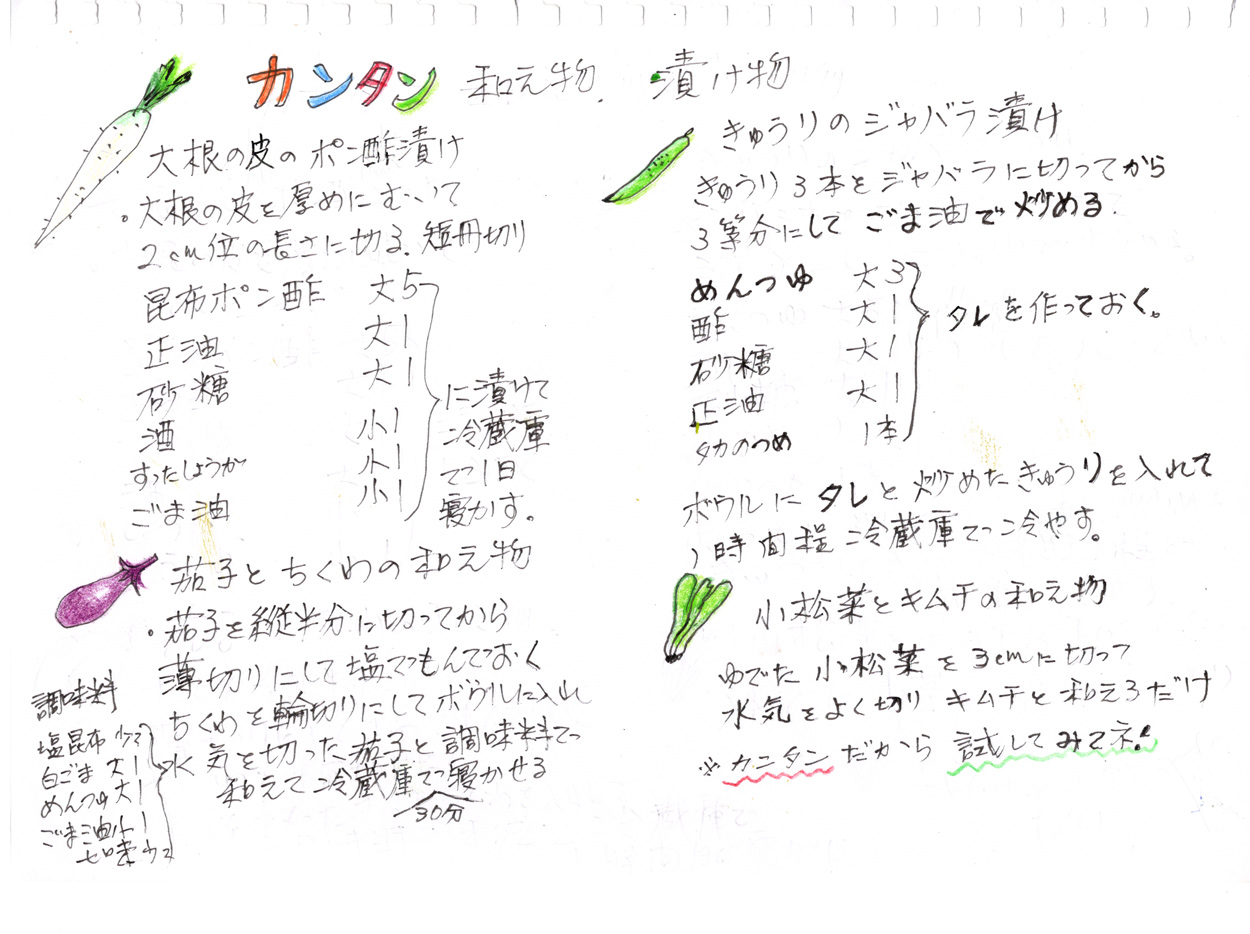 カンタン 和え物. 漬け物
大根の皮のポン酢漬け
・大根の皮を厚めにむいて
2cm位の長さに切る. 短冊切り
昆布ポン酢 大5
正油 大1
砂糖 大1
酒 小1
すったしょうが 小1
ごま油 小1
に漬けて
冷蔵庫
で1日
寝かす。
茄子とちくわの和え物
・茄子を縦半分に切ってから
薄切りにして塩でもんでおく
ちくわを輪切りにしてボウルに入れ
水気を切った茄子と調味料で
和えて冷蔵庫で寝かせる
30分
調味料
塩昆布 少々
白ごま 大1
めんつゆ 大1
ごま油 小1
七味 少々
きゅうりのジャバラ漬け
きゅうり3本をジャバラに切ってから
3等分にしてごま油で炒める.
めんつゆ 大3
酢 大1
砂糖 大1
正油 大1
タカのつめ 1本
タレを作っておく。
ボウルにタレと炒めたきゅうりを入れて
1時間程冷蔵庫で冷やす。
小松菜とキムチの和え物
ゆでた小松菜を3cmに切って
水気をよく切りキムチと和えるだけ
※カンタンだから試してみてネ!